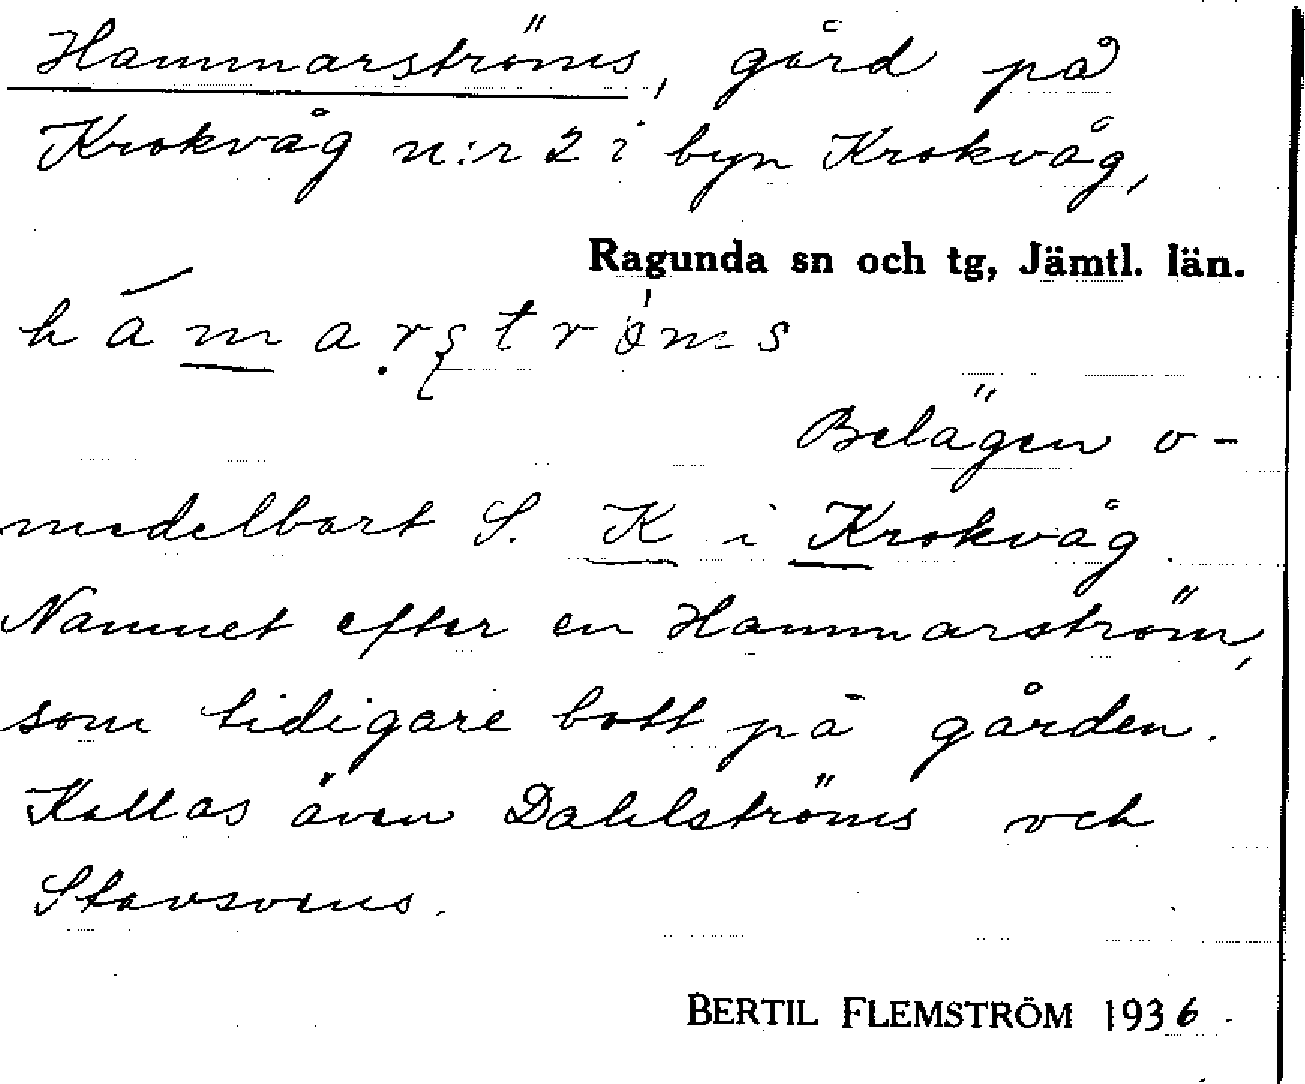 Hammarströms, gård på
Krokvåg n:r 2 i byn Krokvåg,
Ragunda sn och tg, Jämtl. län.
hámarströms
Belägen o-
medelbart S. K i Krokvåg.
Namnet efter en Hammarström,
som tidigare bott på gården.
Kallas även Dahlströms och
Stavsvens.
BERTIL FLEMSTRÖM 1936